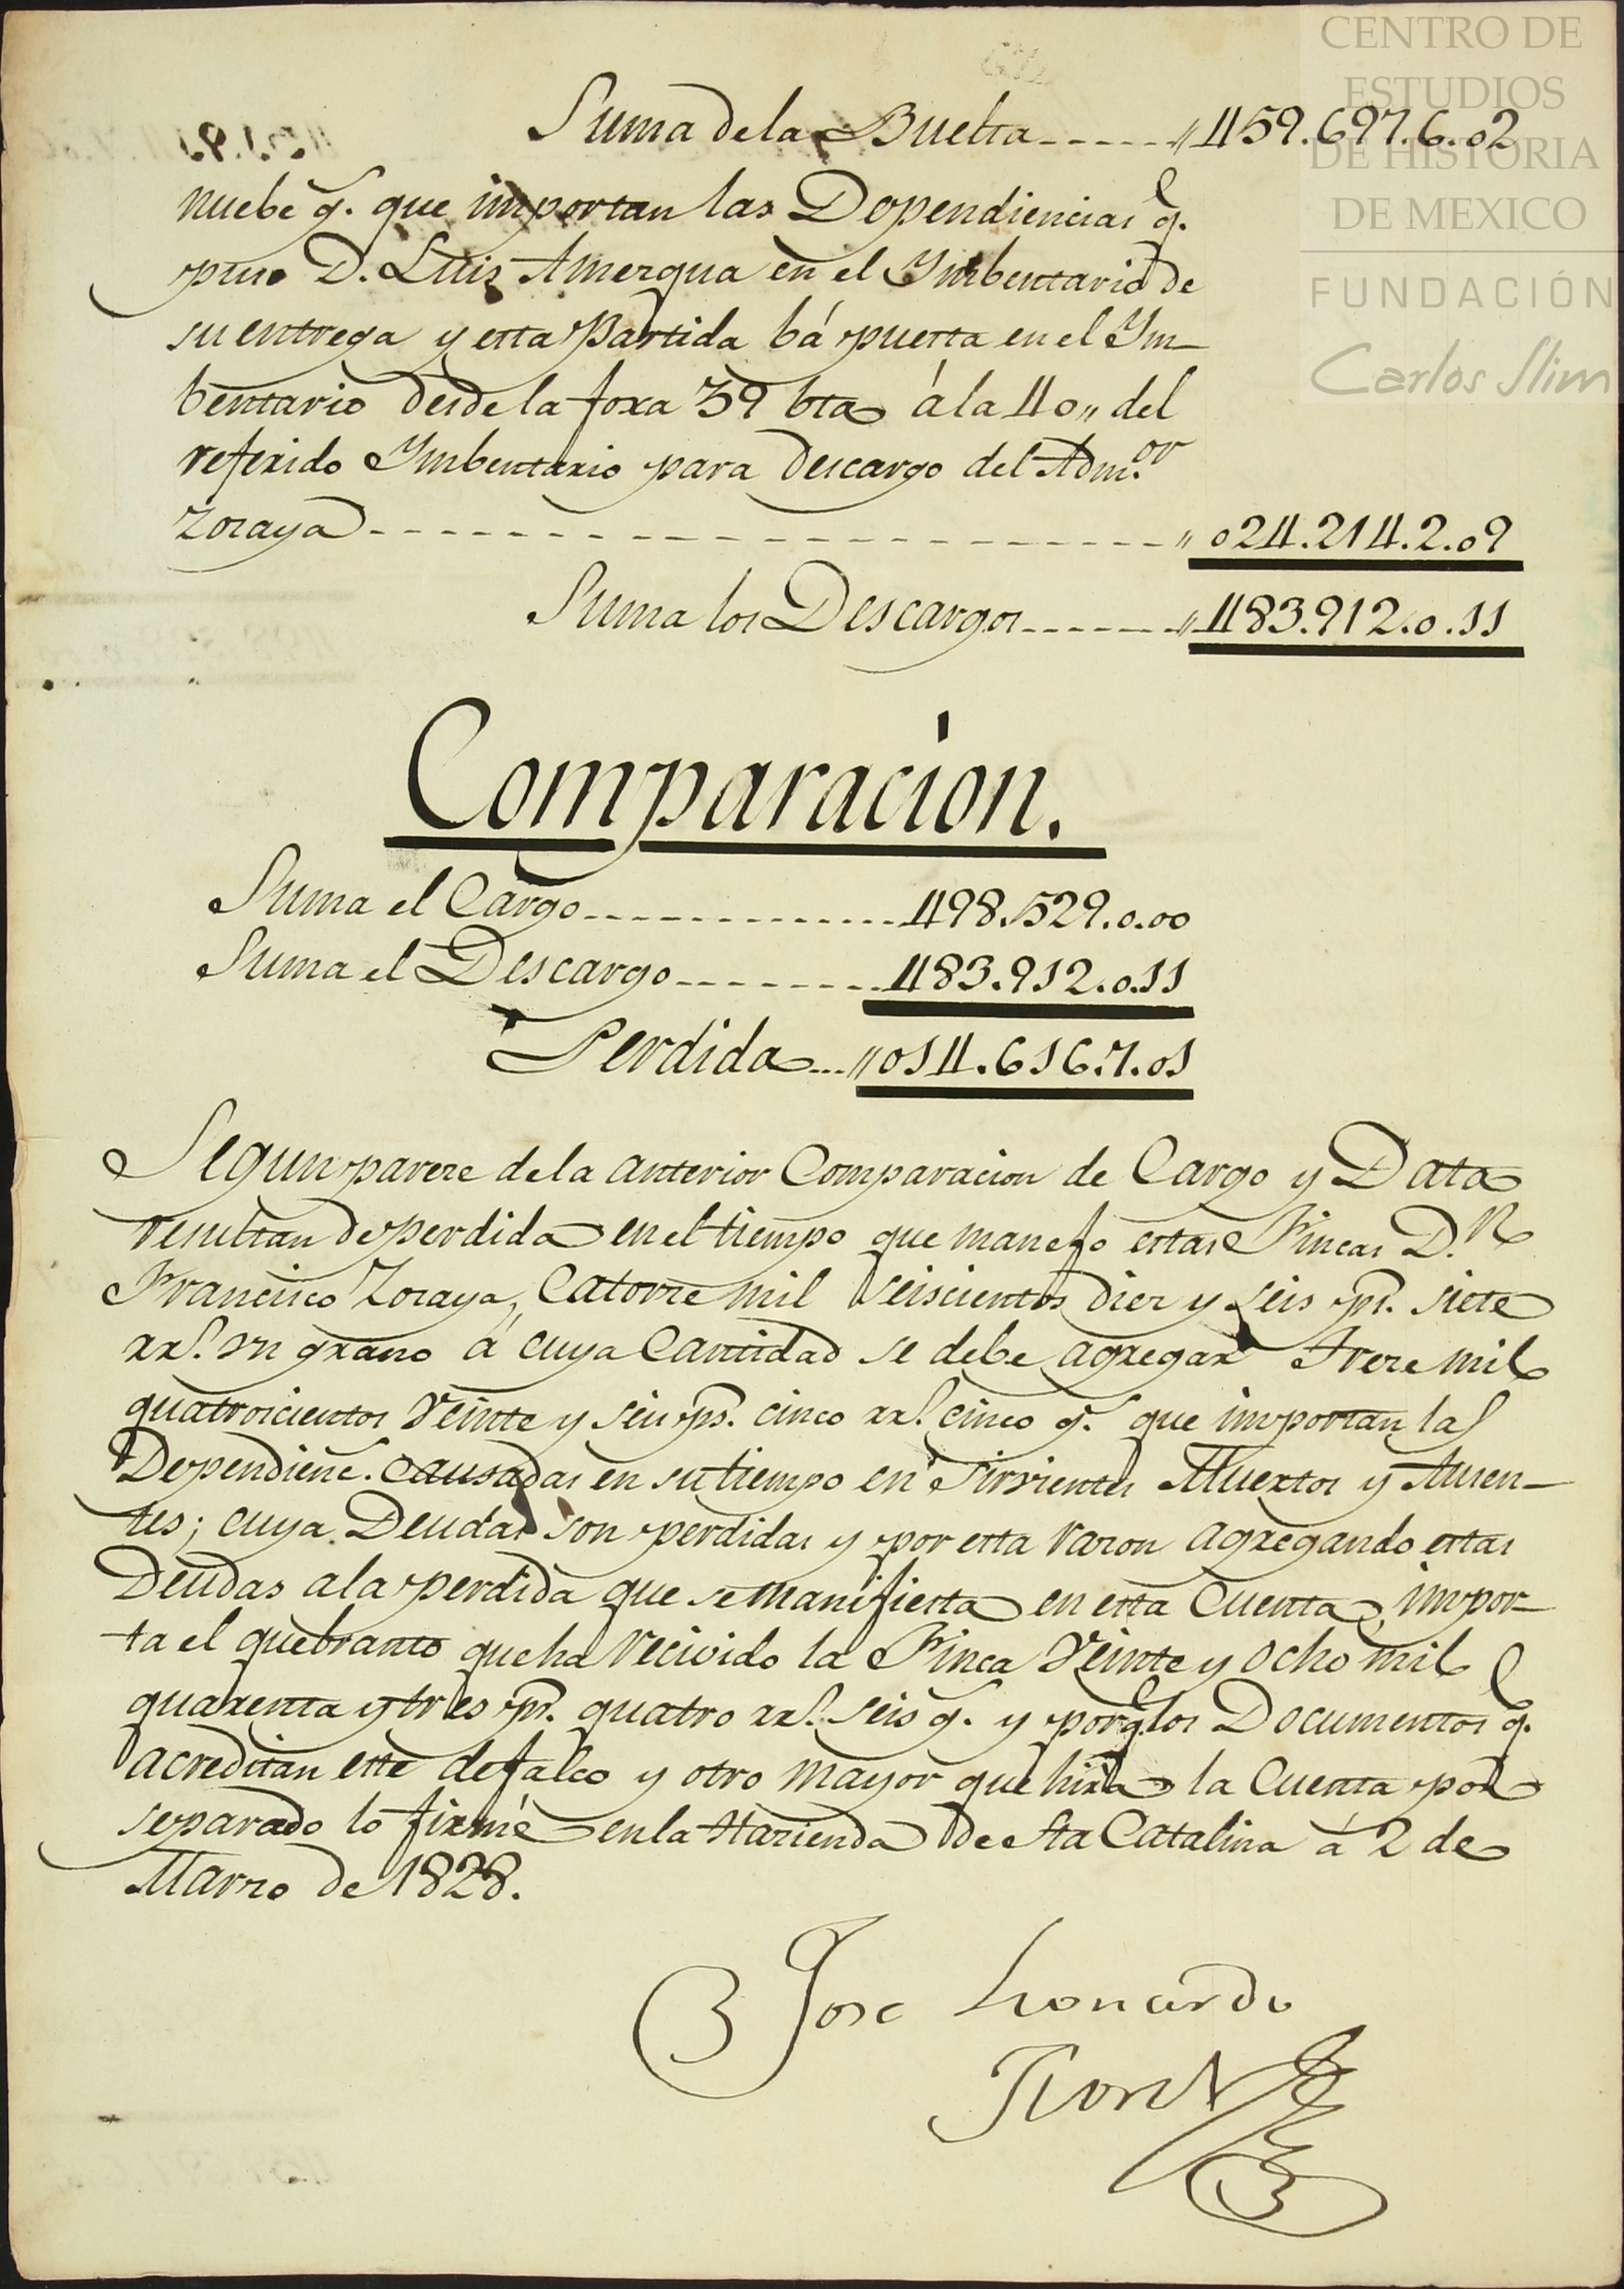 CENTRO DE
ESTUDIOS
DE HISTORIA
DE MEXICO
FUNDACIÓN
Carlos Slim
Suma de la Buelta------„459.697.6.02
nuebe g.s que importan las Dependiencias q.
puso D. Luis Amezqua en el Ymbentario de
su entrega y esta Partida bá puesta en el Ym-
bentario desde la foxa 39 bta á la 40„ del
referido Ymbentario para descargo del Adm.or
Zozaya-----------------------„024.214.2.09
Suma los Descargos-------„483.912.0.11
Comparacion.
Suma el Cargo--------------498.529.0.00
Suma el Descargo---------483.912.0.11
Perdida---„014.616.7.01
Segun parece de la anterior Comparacion de Cargo y Data
resultan de perdida en el tiempo que manejo estas Fincas D.n
Francisco Zozaya, Catorce mil seiscientos diez y seis ps. siete
rr.s un grano á cuya Cantidad se debe agregar Trece mil
quatrocientos Veinte y seis ps. cinco rr.s cinco g.s que importan las
Dependienc.s causadas en su tiempo en Sirvientes Muertos y Ausen-
tes; cuya Deudas son perdidas y por esta razon agregando estas
Deudas a la perdida que se manifiesta en esta Cuenta, impor-
-ta el quebranto que ha recivido la Finca Veinte y ocho mil
quarenta y tres ps. quatro rr.s seis g.s y por q. los Documentos q.
acreditan este defalco y otro mayor que hira la Cuenta por
separado lo firmé en la Hazienda de Sta Catalina á 2 de
Marzo de 1828.
Jose Leonardo